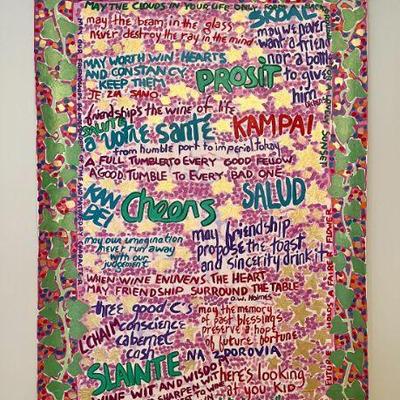 MAY THE CLOUDS IN YOUR LIFE ONLY FORM A BACKGROUND FOR A LOVELY SUNSET
SKOAL
may the beam in the glass
never destroy the ray in the mind
may we never
want a friend
nor a bottle
to give
him
MAY WORTH WIN HEARTS
AND CONSTANCY
KEEP THEM
PROSIT
JE ZA SANO
friendship's the wine of life
SALUTE
a votre santé
KAMPAI
from humble port to imperial Tokay
A FULL TUMBLER TO EVERY GOOD FELLOW
A GOOD TUMBLE TO EVERY BAD ONE
KAN
BEI
Cheers
SALUD
may our imagination
never run away
with our
judgement
may friendship
propose the toast
and sincerity drink it
WHEN WINE ENLIVENS THE HEART
MAY FRIENDSHIP SURROUND THE TABLE
O.W. Holmes
three good C's
conscience
cabernet
cash
L'CHAIM
may the memory
of past blessings
preserve a hope
of future fortune
SLAINTE
NA ZDOROVIA
WINE WIT AND WISDOM
SHARPEN WIT
here's looking
at you KID